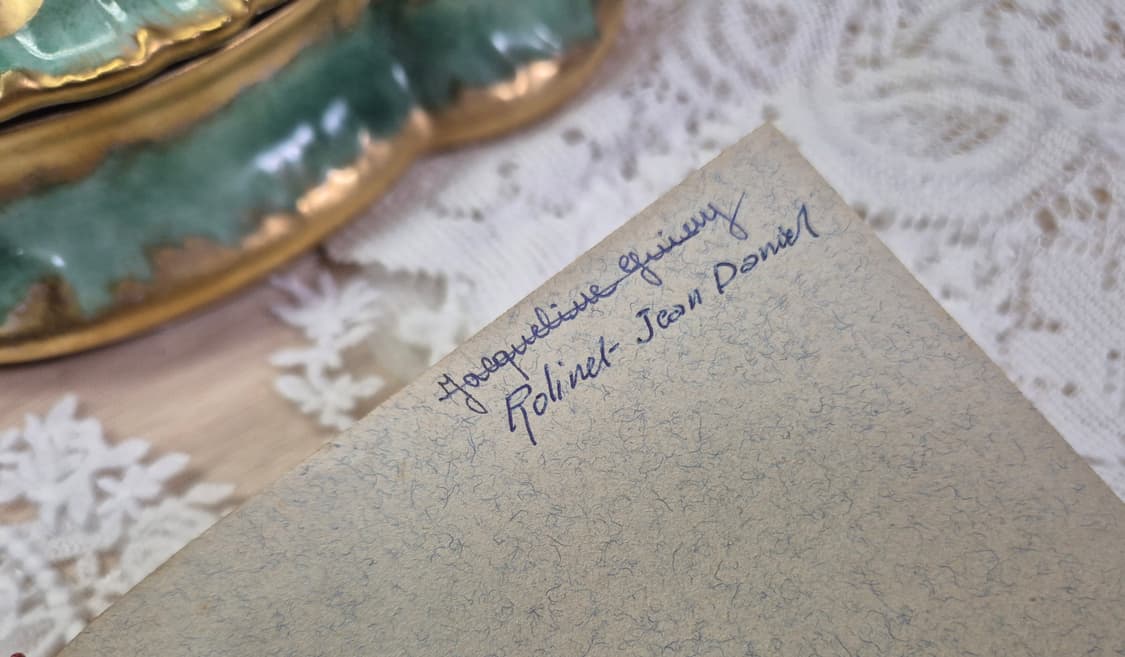 Jacqueline
Rolinet- Jean Daniel